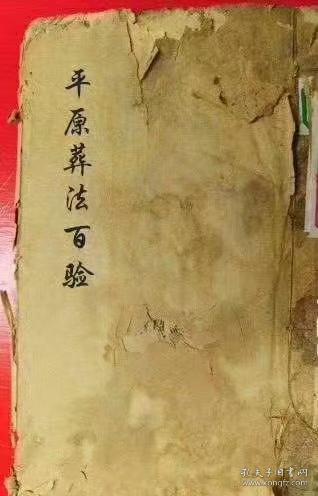 平原葬法百验
孔夫子旧书网
www.kongfz.com